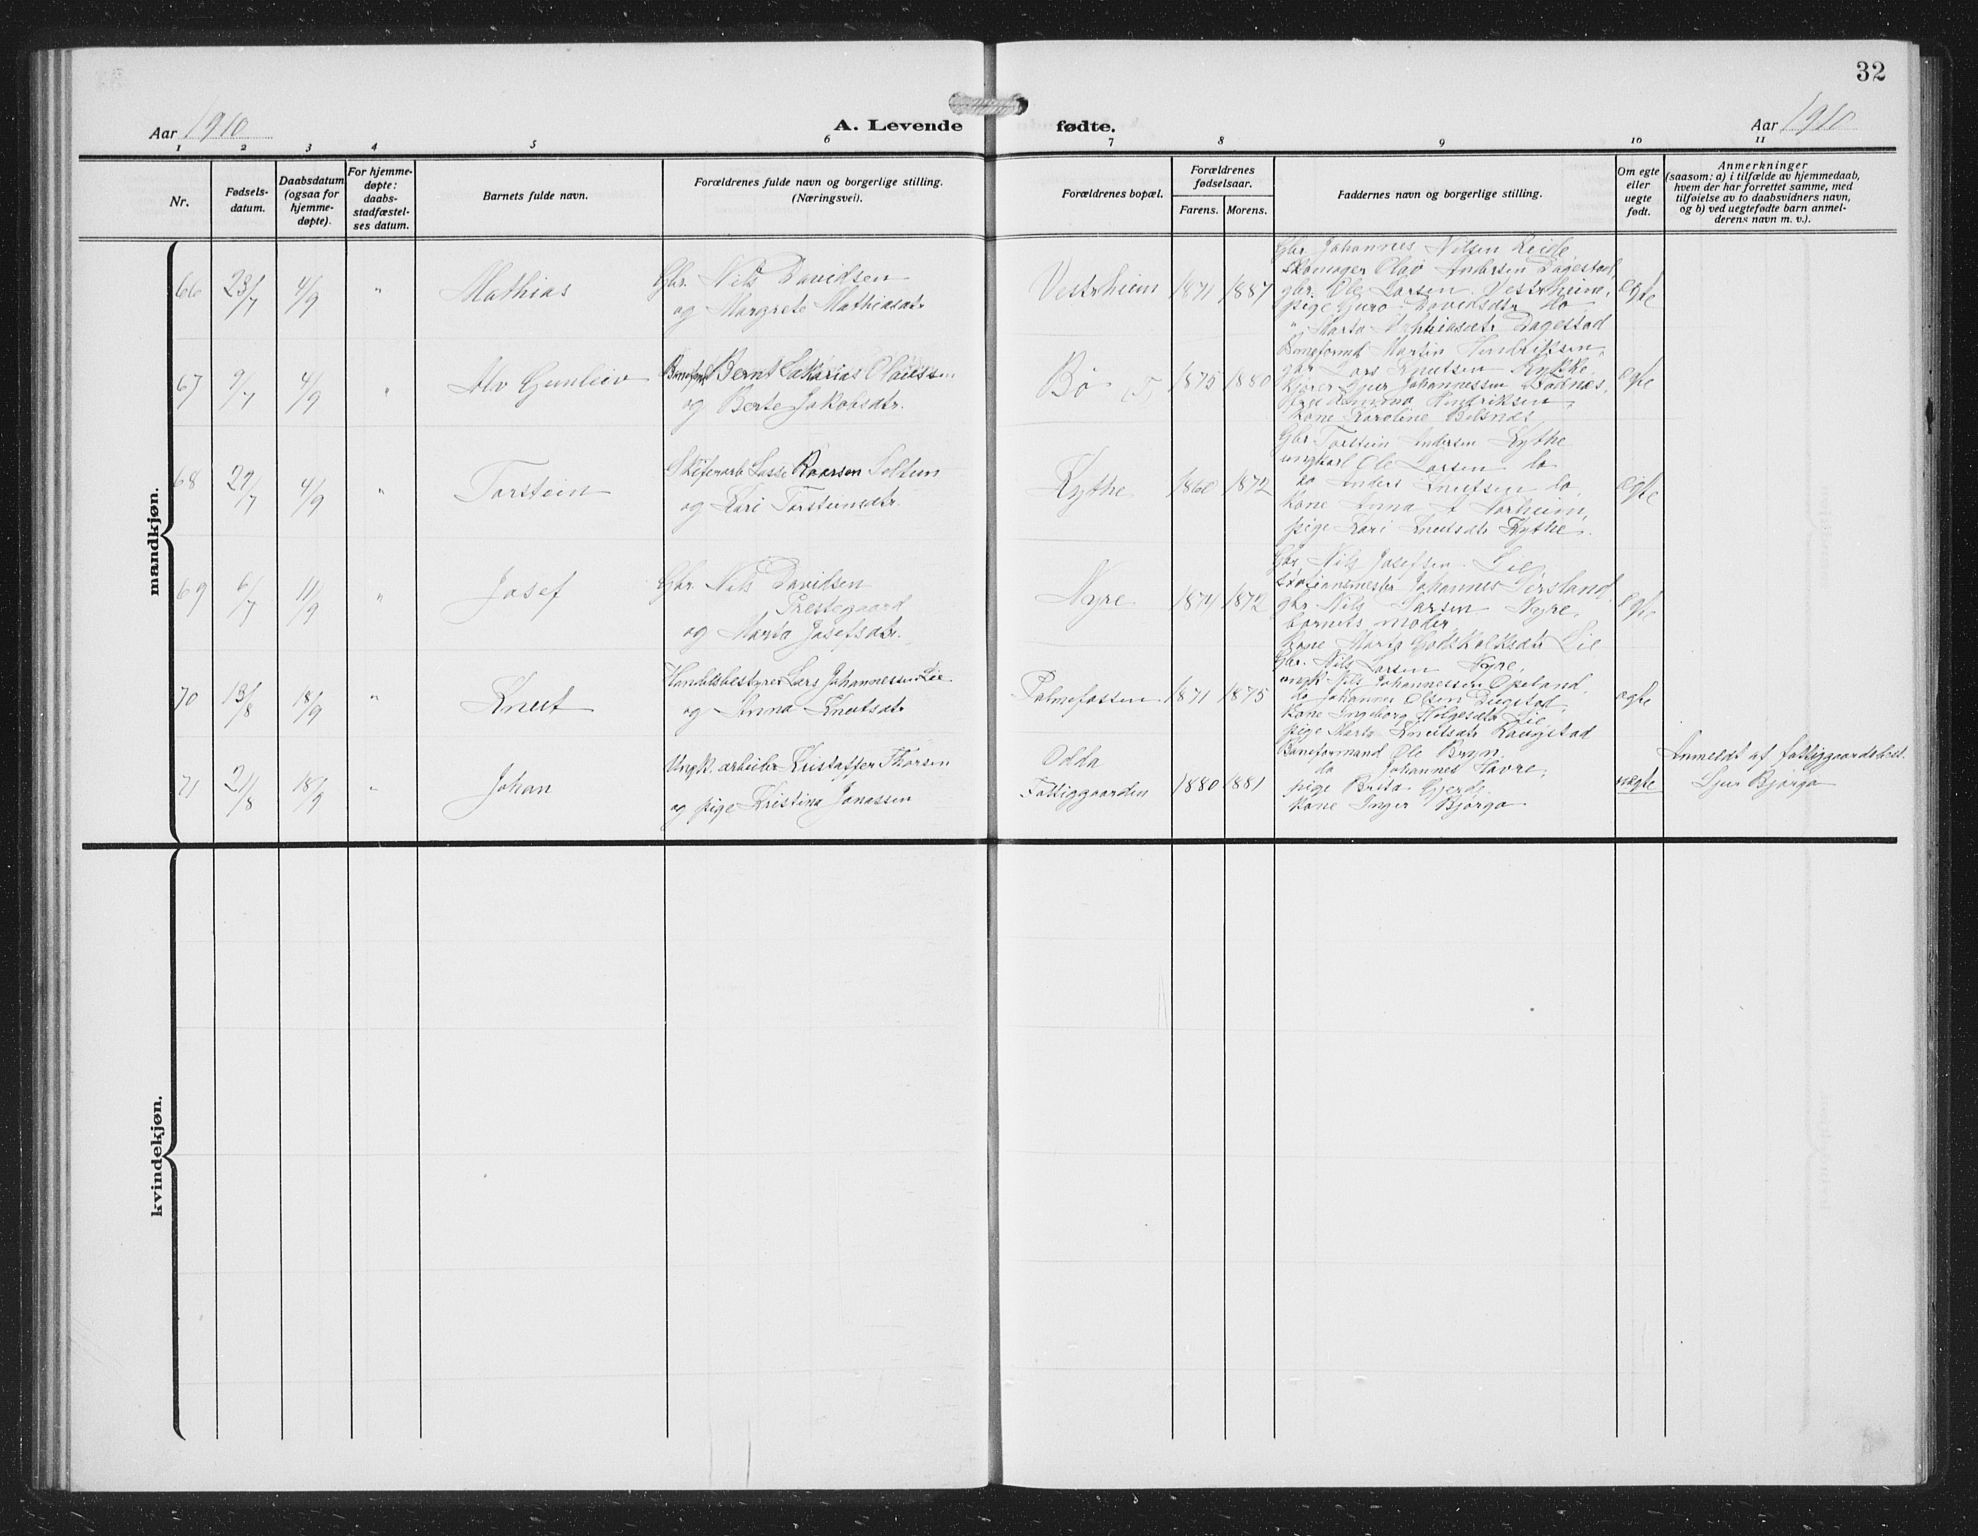 32
Aar 1910
A. Levende fødte.
Aar 1910
1 2 3 4 5 6 7 8 9 10 11
Nr.
Fødsels-
datum.
Daabsdatum
(ogsaa for
hjemme-
døpte).
For hjemme-
døpte:
daabs-
stadfæstel-
ses datum.
Barnets fulde navn.
Forældrenes fulde navn og borgerlige stilling.
(Næringsvei).
Forældrenes bopæl.
Forældrenes
fødselsaar.
Farens. Morens.
Faddernes navn og borgerlige stilling.
Om egte
eller
uegte
født.
Anmerkninger
(saasom: a) i tilfælde av hjemmedaab,
hvem der har forrettet samme, med
tilføielse av to daabsvidners navn,
og b) ved uegtefødte barn anmel-
derens navn m. v.).
mandkjøn.
66 23/7 4/9 " Mathias
Gbr. Nils Davidsen
og Margrete Mathiasdtr
Vestrheim 1871 1887
Gbr Johannes Nilsen Reide
Skomager Olav Andersen Dagestad,
gbr. Ole Larsen Vestrheim,
pige Guro Davidsdtr do
" Marta Mathiasdtr Dagestad
egte
67 9/7 4/9 " Alv Gunleiv
Baneform Bernt Sakarias Olaissen
og Berte Jakobsdtr.
Bø 1875 1880
Baneformd Martin Hendriksen,
gbr Lars Knutsen Rykke,
Sjur Johannessen
pige Emma Hendriksen,
Kone Karoline
egte
68 29/7 4/9 " Torstein
Skiferarb Lasse Roarsen Seltun
og Kari Torsteinsdtr.
Kythe 1860 1872
Gbr Torstein Andersen Kythe
ungkarl Ole Larsen do
do Anders Knutsen do,
Kone Anna A Norheim,
pige Kari Knutsdtr Kythe.
egte
69 6/7 11/9 " Josef
Gbr. Nils Davidsen
Prestegaard
og Marta Josefsdtr.
Nyre 1874 1872
Gbr Nils Josefsen Lie
Stationsmester Johannes
gbr Nils Larsen Nyre,
barnets moder,
Kone Marta Godskalksdtr Lie
egte
70 13/8 18/9 " Knut
Handelsbestyrer Lars Johannessen Lie
og Anna Knutsdtr
Palmefossen 1871 1875
Gbr. Nils Larsen Nyre,
ungk Nils Johannessen Opeland,
do Johannes Olsen Dugstad,
Kone Ingeborg Helgesdtr Lie,
pige Marta Knutsdtr
egte
71 21/8 18/9 " Johan
Ungk. arbeider Kristoffer Thorsen
og pige Kristina Jonassen
Odda
Fattiggaarden 1880 1881
Baneformand Ole Bryn,
do Johannes Hovre,
pige Brita Gjerde
Kone Inger Bjørgo
uegte
Anmeldt af fattiggaardsbest.
Sjur Bjørgo
kvindekjøn.